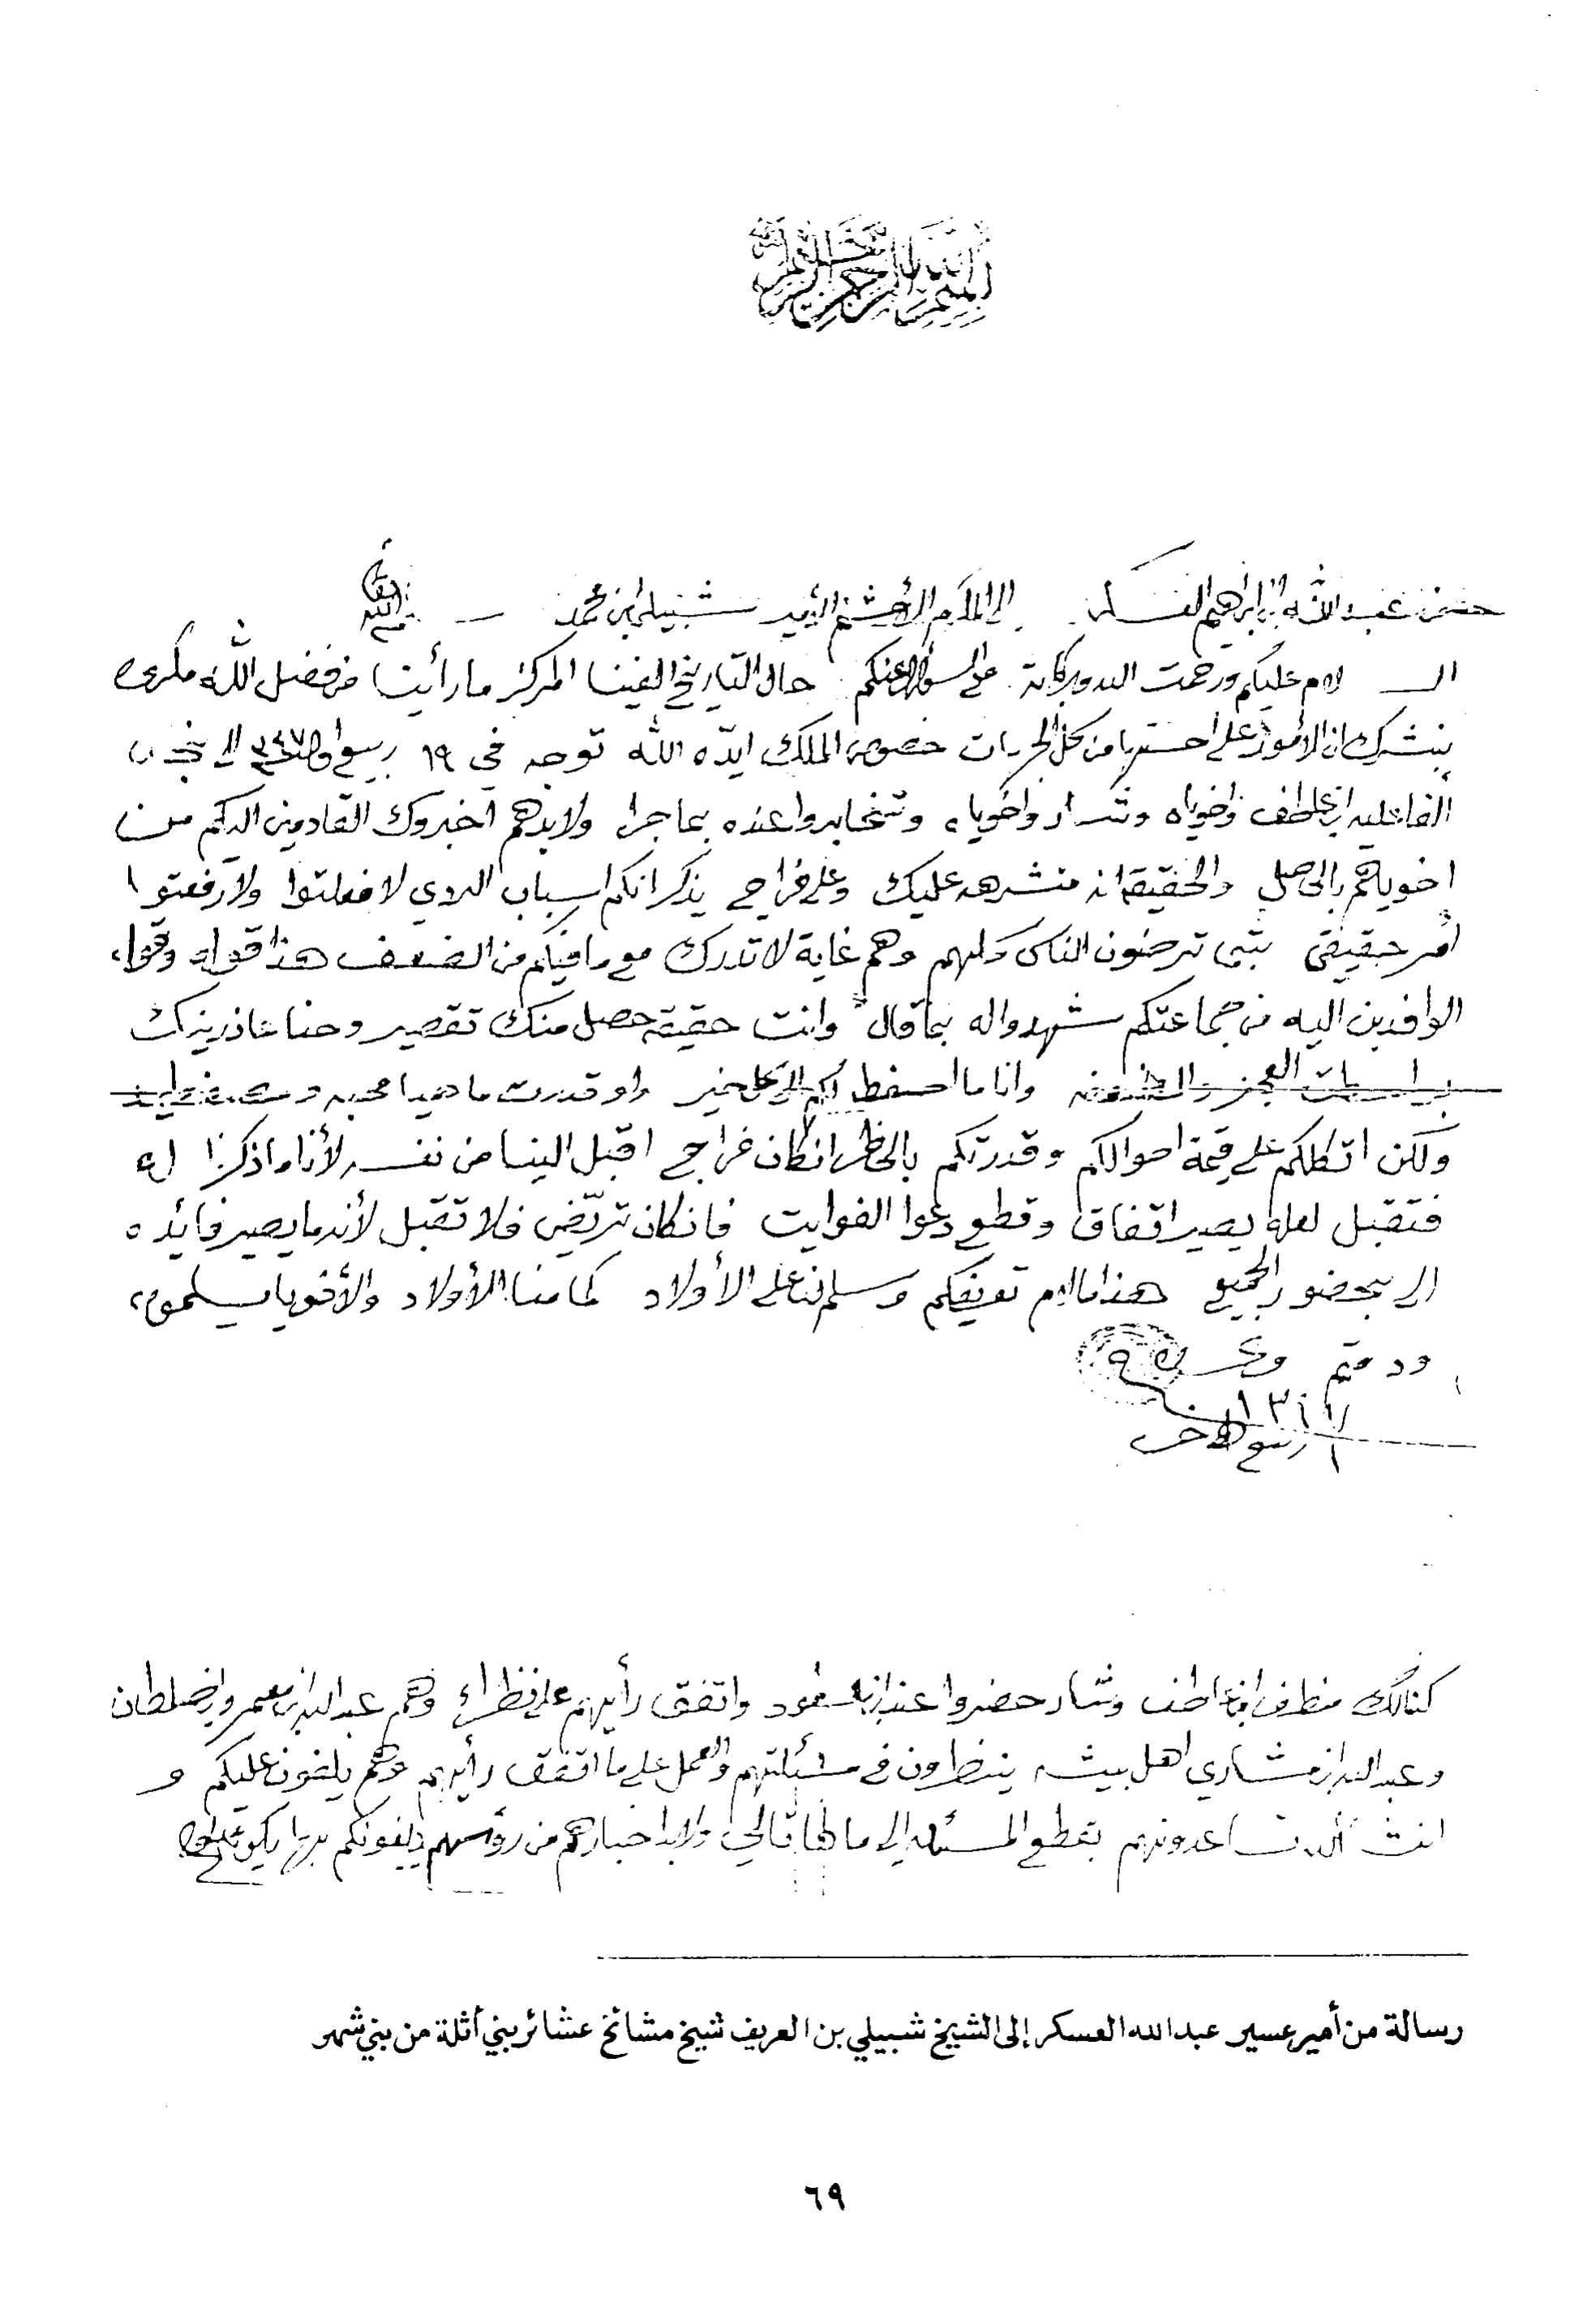 بسم الله الرحمن الرحيم
من عبدالله ابن ابراهيم العسكر الى المكرم الأحشم الأمير شبيلي ابن محمد سلمه الله
السلام عليكم ورحمت الله وبركاته على السؤال عنكم حال التاريخ الفينا المركز ما رأينا من فضل الله مكروه
نبشرك ان الأمور على احسنها من كل الجهات خصوص الملك ايده الله توجه في ١٩ ربيع اول ٣٤٧ الى نجد
الفا عليه ابن غاطف واخوياه وشار واخوياه وتخابروا عنده بما جرا ولا بدهم اخبروك القادمين اليكم من
اخوياهم بالحاصل والحقيقة انه متشره عليك وعلى فراج يذكر انكم اسباب الردي لا فعلتوا ولا رفعتوا
أمر حقيقي تبي ترضون الناس كلهم وهم غاية لا تدرك مع ما فيكم من الضعف هذا قوله وقول
الوافدين اليه من جماعتكم شهدوا له بما قال وانت حقيقة حصل منك تقصير وحنا عاذرينك
باسباب العجز وانا ما احفظ لكم الا كل خير
ولكن اتكلكم على قيمة احوالكم وقدرتكم بالخاطر ان كان فراج اقبل الينا من نفسه لأنا ما ذكرنا له
فتقبل لعله يصير اتفاق وقطع دعوا الفوايت فان كان تريّض فلا تقبل لأنه ما يصير فائده
الا بحضور الجميع هذا ما لزم تعريفكم وسلم لنا على الأولاد كما منا الأولاد والأخويا يسلمون
ودمتم
ربيع آخر
كذالك ابن غاطف وشار حضروا عند ابن سعود واتفق رأيهم على نظراء وهم عبدالله ابن معمر وابن سلطان
وعبدالله ابن مشاري اهل بيشه ينظرون في مسئلتهم والعمل على ما اتفق رأيهم وهم يلفون عليكم و
انت تساعدونهم بقطع المسئله الى ما لها تالي ولابد اخبارهم من رؤسهم يلفونكم بها يكون معلوم
رسالة من أمير عسير عبدالله العسكر إلى الشيخ شبيلي بن العريف شيخ مشائخ عشائر بني أثلة من بني شهر
٦٩